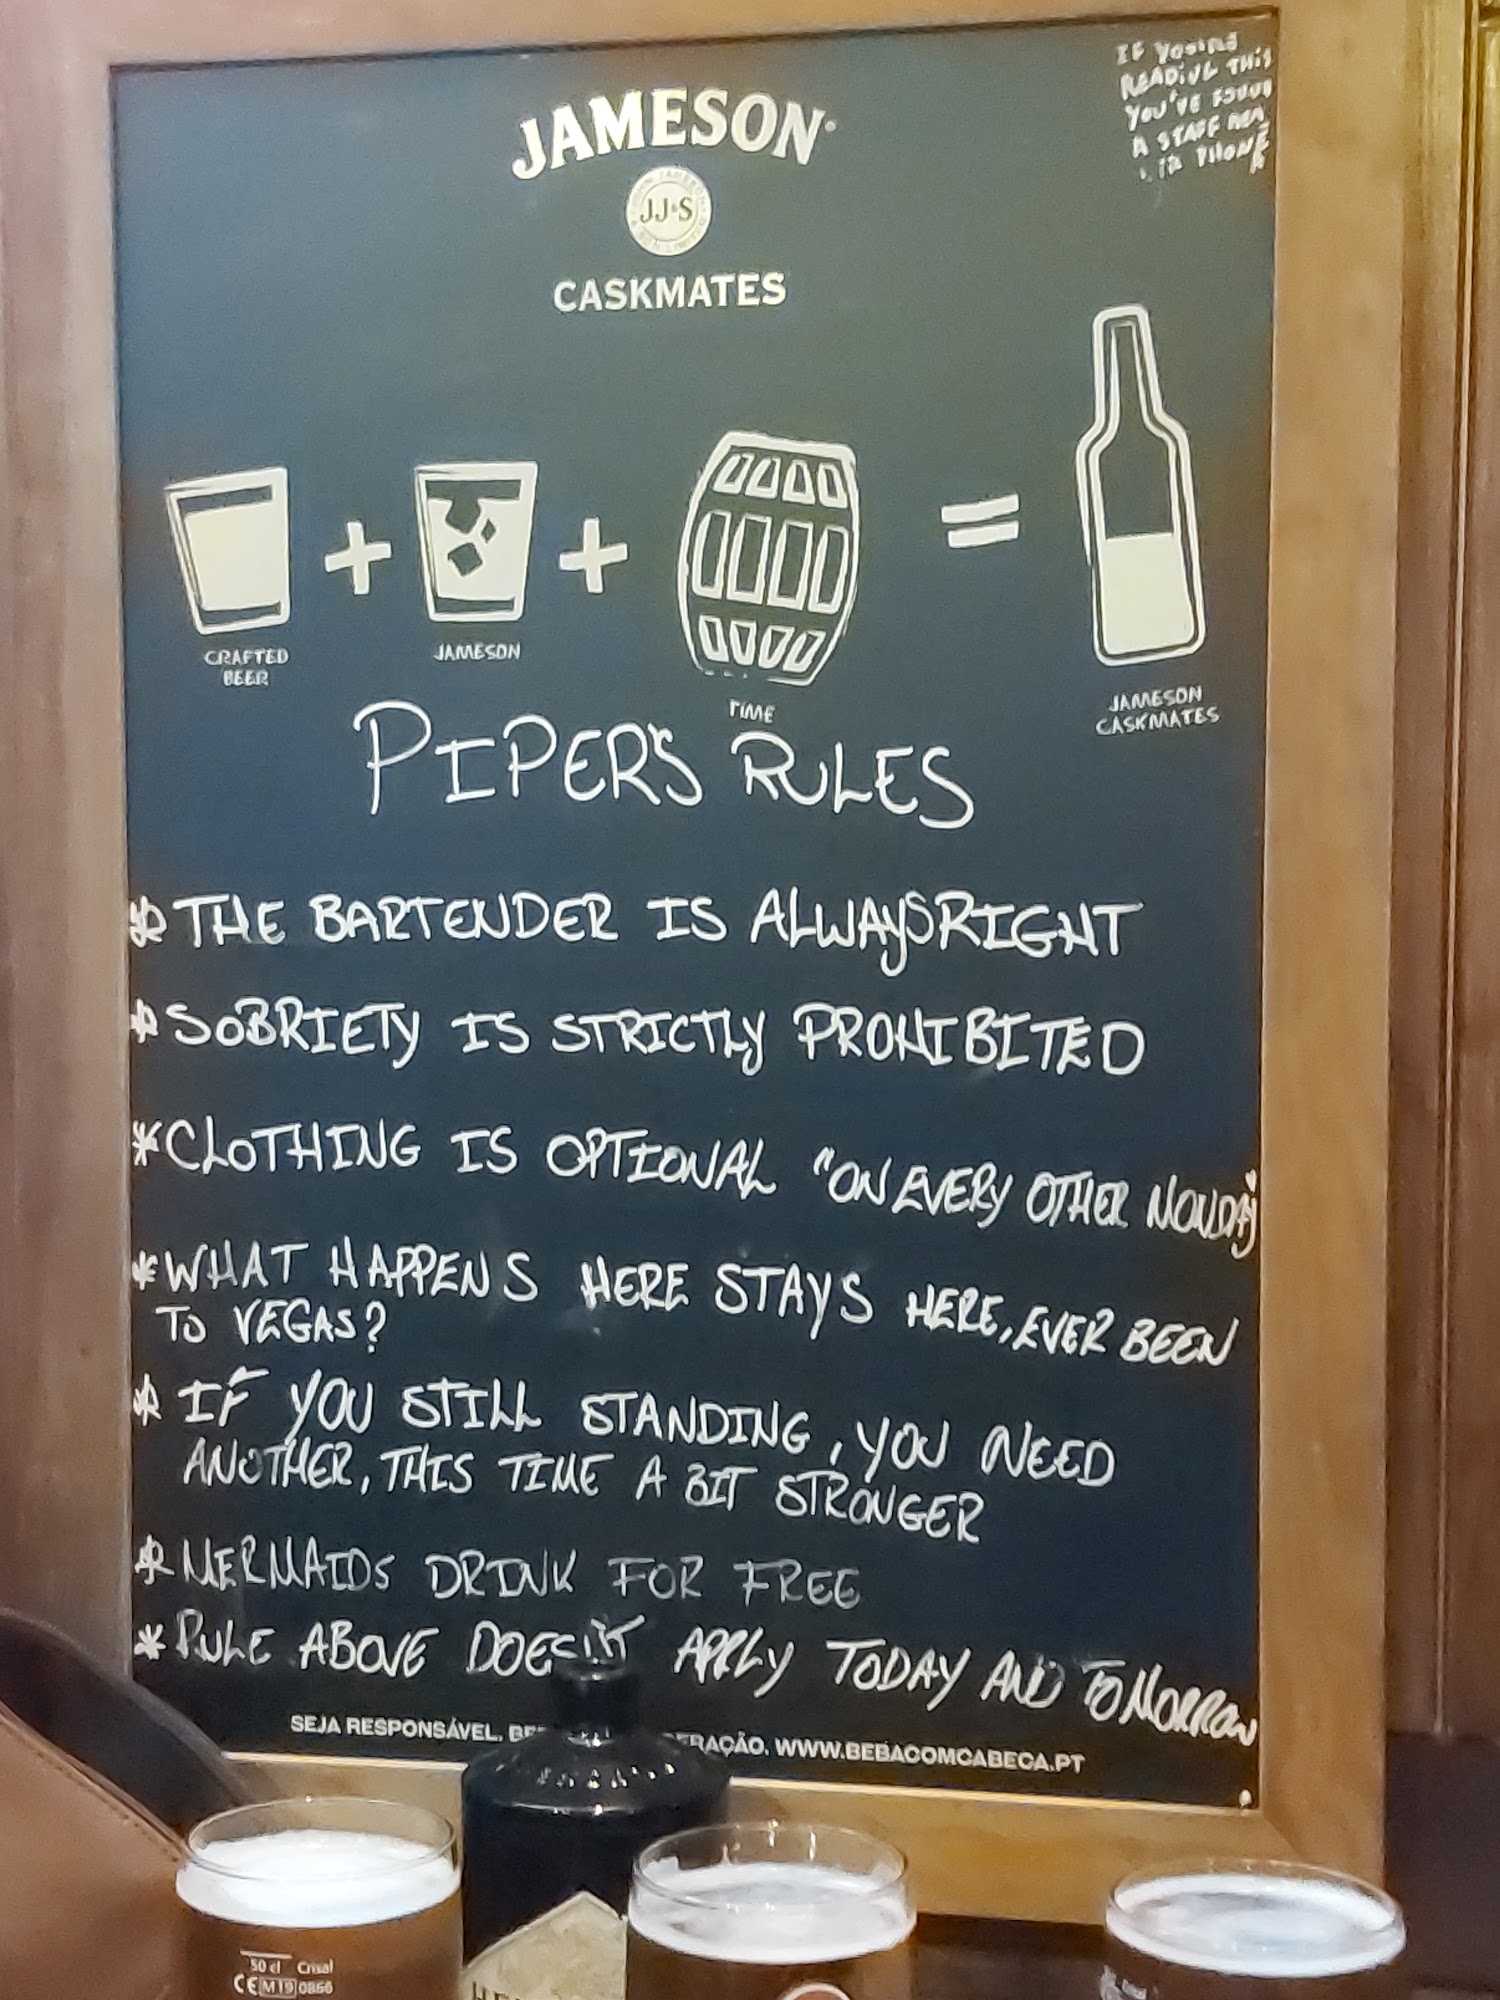 IF YOU'RE
READING THIS
YOU'VE FOUND
A STAFF
PHONE
JAMESON
JJ&S
CASKMATES
CRAFTED
BEER
JAMESON
TIME
JAMESON
CASKMATES
PIPER'S RULES
* THE BARTENDER IS ALWAYS RIGHT
* SOBRIETY IS STRICTLY PROHIBITED
* CLOTHING IS OPTIONAL "ON EVERY OTHER MONDAY"
* WHAT HAPPENS HERE STAYS HERE, EVER BEEN
TO VEGAS?
* IF YOU STILL STANDING, YOU NEED
ANOTHER, THIS TIME A BIT STRONGER
* MERMAIDS DRINK FOR FREE
* RULE ABOVE DOESN'T APPLY TODAY AND TOMORROW
SEJA RESPONSÁVEL. BE ERAÇÃO. WWW.BEBACOMCABECA.PT
50 cl Crisal
CE M19 0866